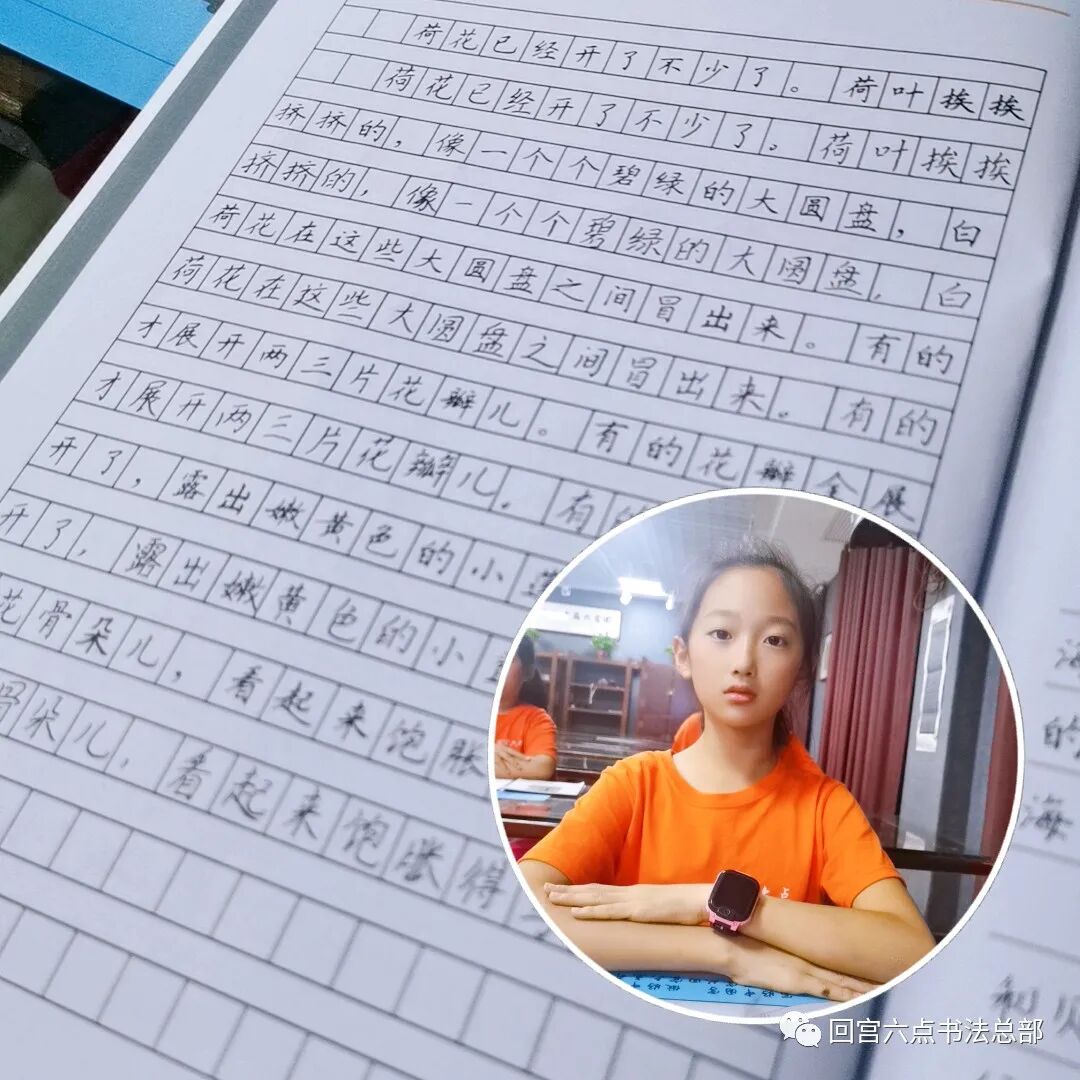 荷花已经开了不少了。荷叶挨挨
荷花已经开了不少了。荷叶挨挨
挤挤的，像一个个碧绿的大圆盘，白
挤挤的，像一个个碧绿的大圆盘，白
荷花在这些大圆盘之间冒出来。有的
荷花在这些大圆盘之间冒出来。有的
才展开两三片花瓣儿。有的花瓣全展
才展开两三片花瓣儿。有
开了，露出嫩黄色的小
开了，露出嫩黄色的小
花骨朵儿，看起来饱胀
骨朵儿，看起来饱胀得
的
海
回宫六点书法总部